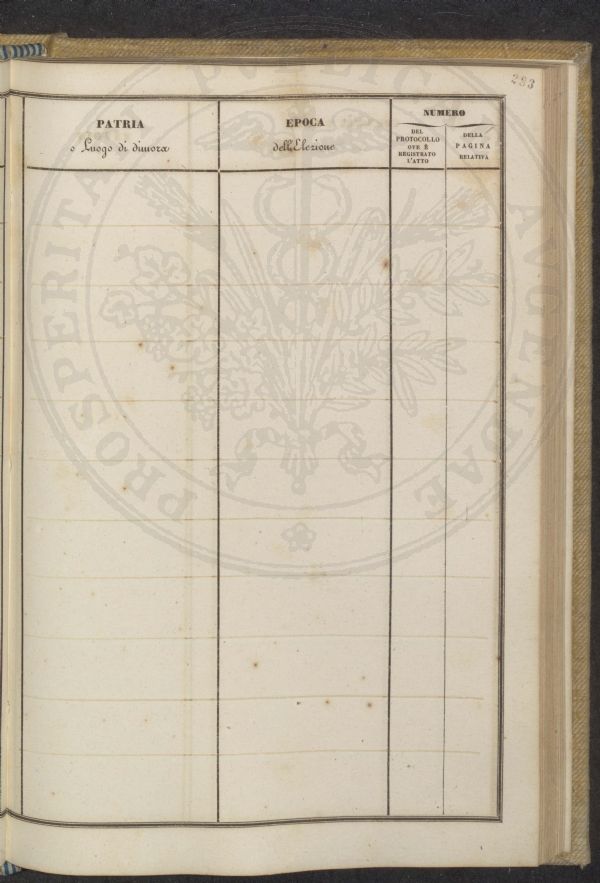 283
PATRIA
o Luogo di dimora
EPOCA
dell'Elezione
NUMERO
DEL
PROTOCOLLO
OVE È
REGISTRATO
L'ATTO
DELLA
PAGINA
RELATIVA
PROSPERITATI PUBLICAE AUGENDAE